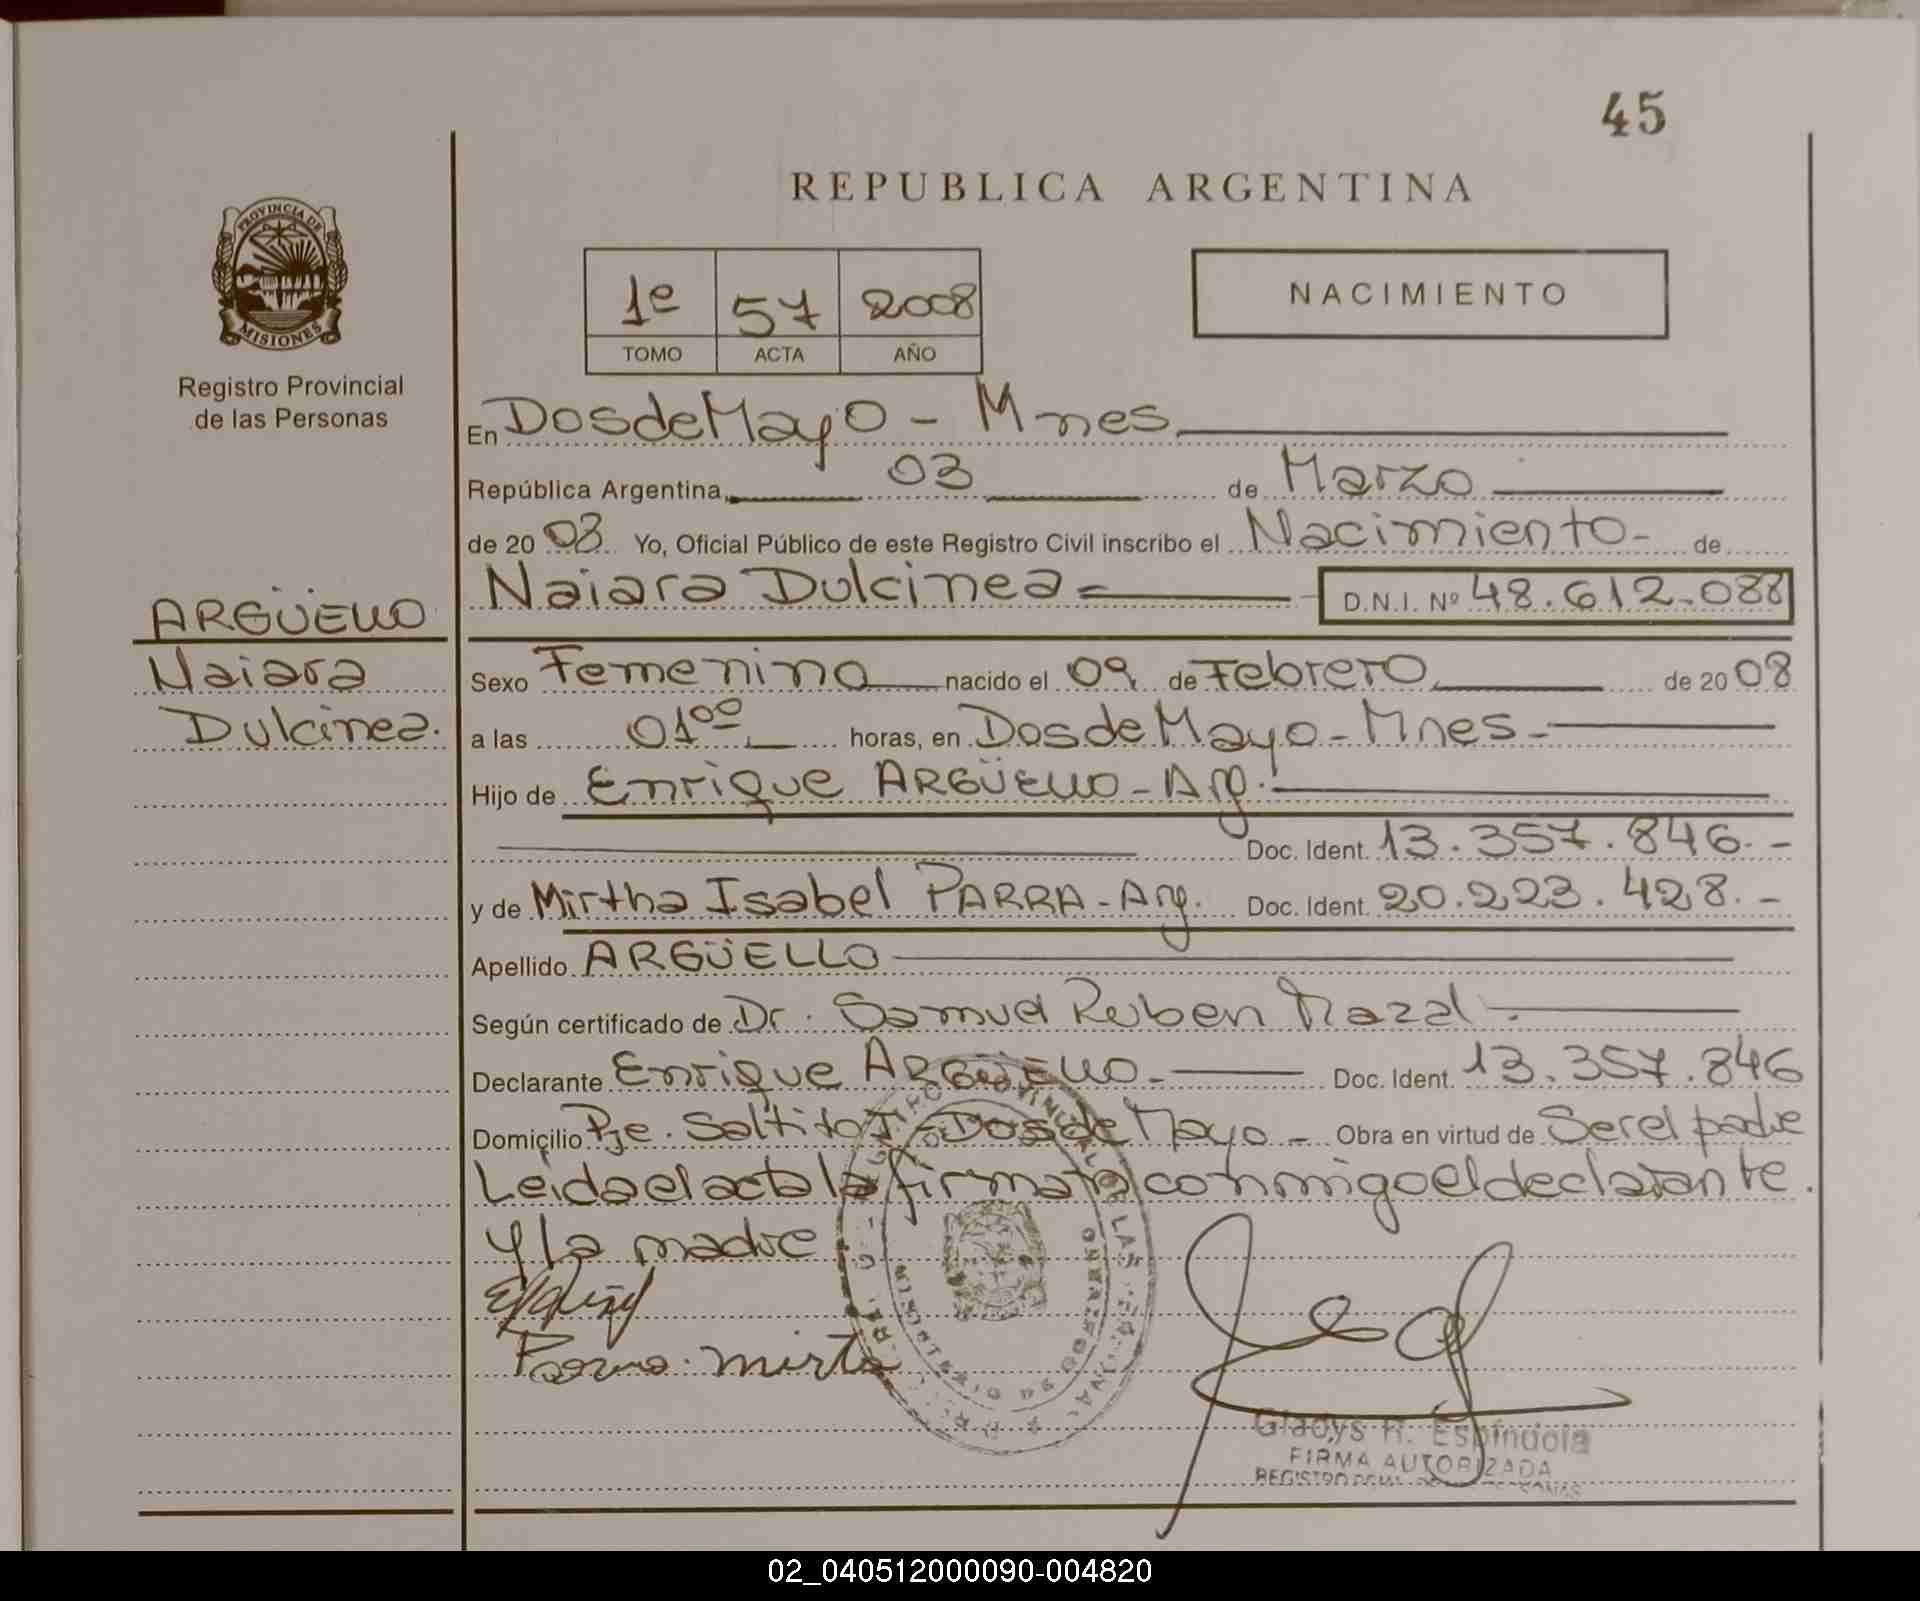 45
REPUBLICA ARGENTINA
PROVINCIA DE
MISIONES
Registro Provincial
de las Personas
1e 57 2008
TOMO ACTA AÑO
NACIMIENTO
En Dos de Mayo - Mnes
República Argentina, 03 de Marzo
de 20 08 Yo, Oficial Público de este Registro Civil inscribo el Nacimiento - de
Naiara Dulcinea = D.N.I. Nº 48.612.088
ARGÜELLO
Naiara
Dulcinea.
Sexo Femenino nacido el 09 de Febrero de 20 08
a las 01⁰⁰ horas, en Dos de Mayo - Mnes -
Hijo de Enrique ARGÜELLO - Arg.
Doc. Ident. 13.357.846.-
y de Mirtha Isabel PARRA - Arg. Doc. Ident. 20.223.428.-
Apellido ARGÜELLO
Según certificado de Dr. Samuel Ruben Nazal
Declarante Enrique ARGÜELLO - Doc. Ident. 13.357.846
Domicilio Pje. Saltito I - Dos de Mayo - Obra en virtud de Ser el padre
Leida el acta la firmara conmigo el declarante.
y la madre
Parra. mirta
Gladys R. Espíndola
FIRMA AUTORIZADA
02_040512000090-004820